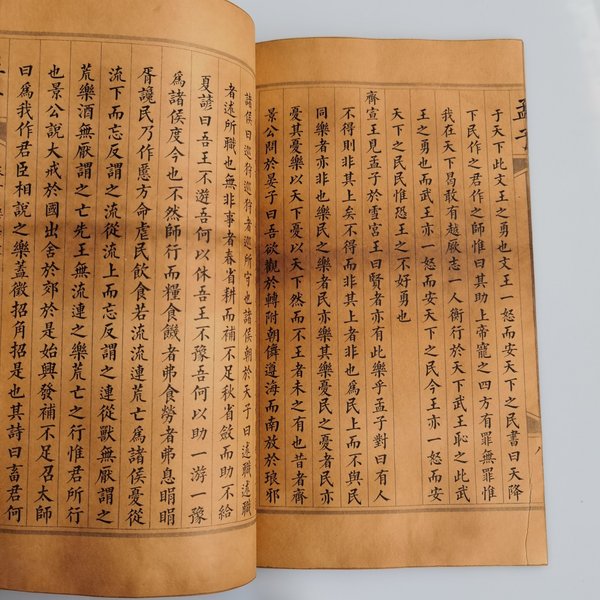 孟子
于天下此文王之勇也文王一怒而安天下之民書曰天降
下民作之君作之師惟曰其助上帝寵之四方有罪無罪惟
我在天下曷敢有越厥志一人衡行於天下武王恥之此武
王之勇也而武王亦一怒而安天下之民今王亦一怒而安
天下之民民惟恐王之不好勇也
齊宣王見孟子於雪宮王曰賢者亦有此樂乎孟子對曰有人
不得則非其上矣不得而非其上者非也爲民上而不與民
同樂者亦非也樂民之樂者民亦樂其樂憂民之憂者民亦
憂其憂樂以天下憂以天下然而不王者未之有也昔者齊
景公問於晏子曰吾欲觀於轉附朝儛遵海而南放於琅邪
諸侯曰巡狩巡狩者巡所守也諸侯朝於天子曰述職述職
者述所職也無非事者春省耕而補不足秋省斂而助不給
夏諺曰吾王不游吾何以休吾王不豫吾何以助一游一豫
爲諸侯度今也不然師行而糧食饑者弗食勞者弗息睊睊
胥讒民乃作慝方命虐民飲食若流流連荒亡爲諸侯憂從
流下而忘反謂之流從流上而忘反謂之連從獸無厭謂之
荒樂酒無厭謂之亡先王無流連之樂荒亡之行惟君所行
也景公說大戒於國出舍於郊於是始興發補不足召太師
曰爲我作君臣相說之樂蓋徵招角招是也其詩曰畜君何